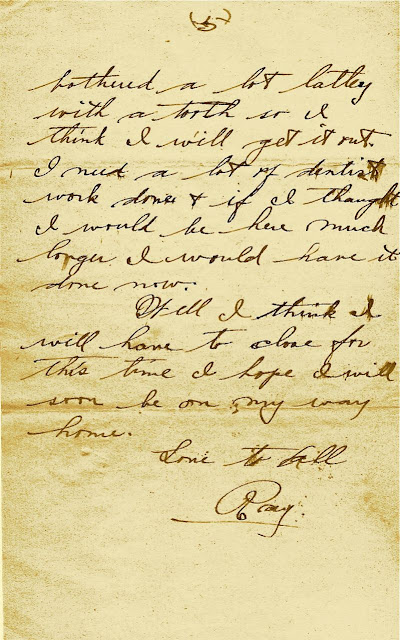 (5)
bothered a lot latley
with a tooth so I
think I will get it out.
I need a lot of dentist
work done & if I thought
I would be here much
longer I would have it
done now.
Well I think I
will have to close for
this time I hope I will
soon be on my way
home.
Love to all
Ray.